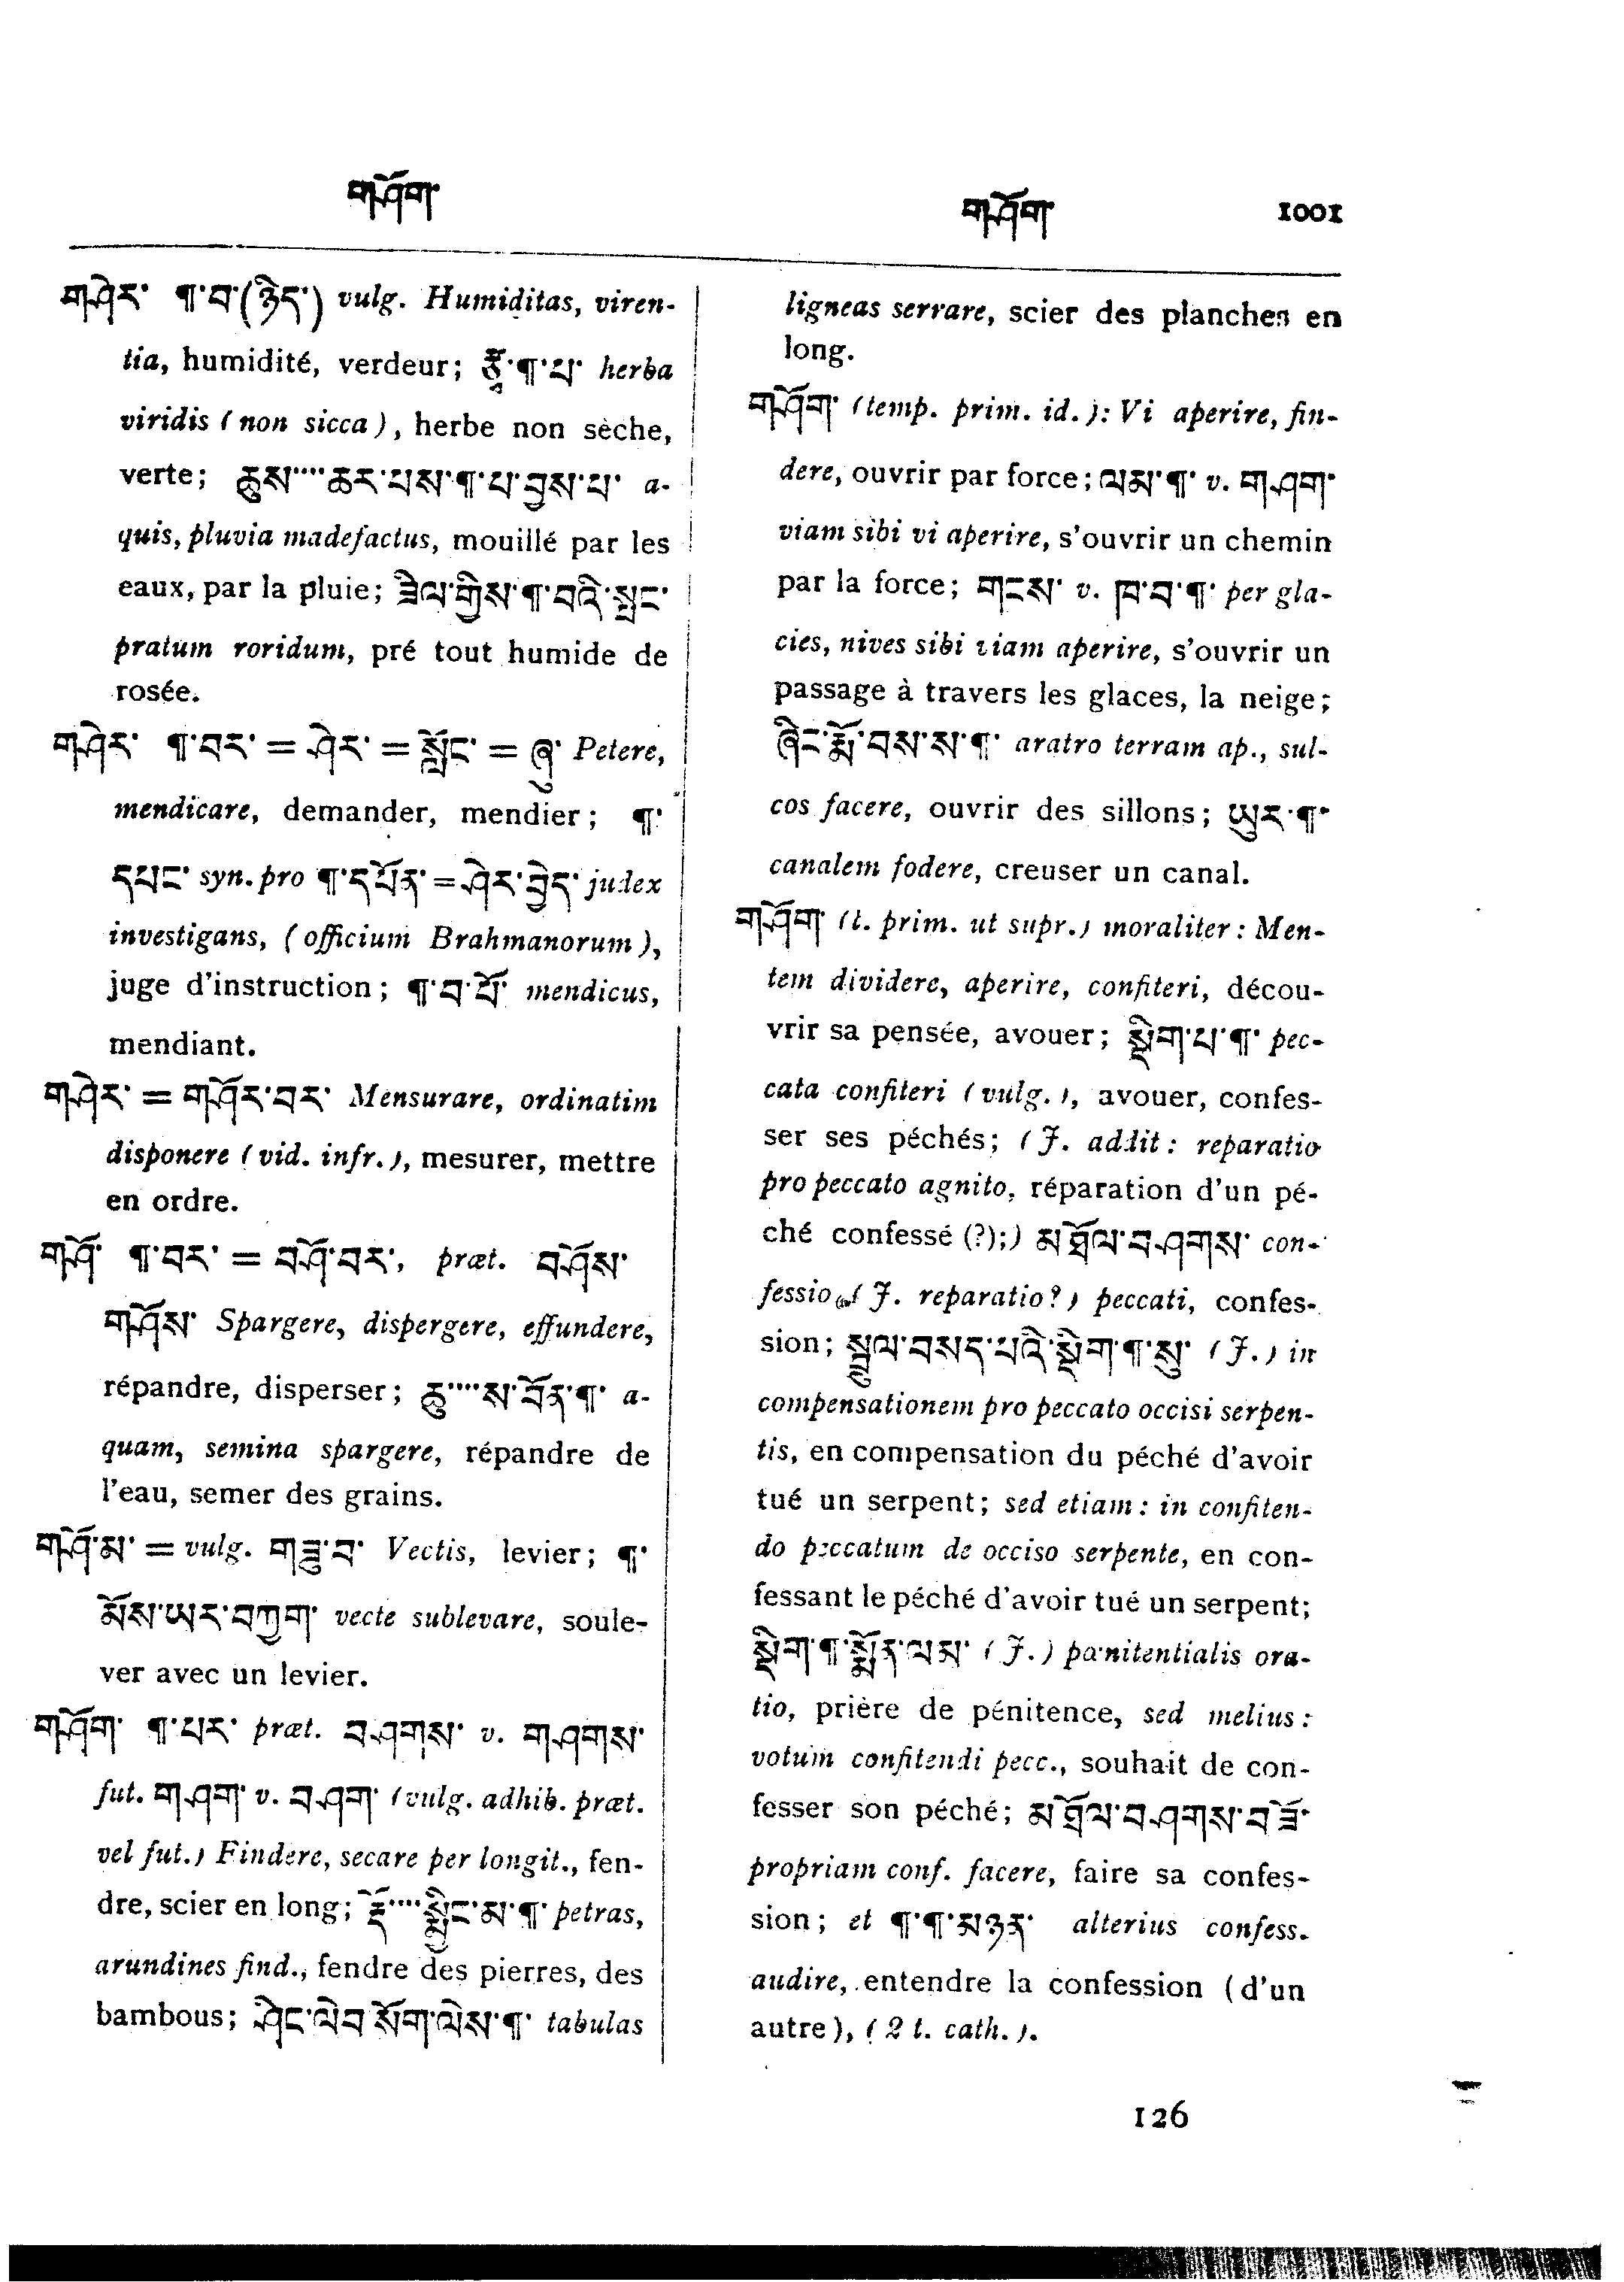 གཤོག་
གཤོག་ 1001
གཤེར་ ¶་བ་(ཉིད་) vulg. Humiditas, viren-
tia, humidité, verdeur; རྩྭ་¶་པ་ herba
viridis (non sicca), herbe non sèche,
verte; ཆུས་····ཆར་པས་¶་པ་བྱས་པ་ a-
quis, pluvia madefactus, mouillé par les
eaux, par la pluie; ཟིལ་གྱིས་¶་བའི་སྤང་
pratum roridum, pré tout humide de
rosée.
གཤེར་ ¶་བར་ = ཤེར་ = སློང་ = ཞུ་ Petere,
mendicare, demander, mendier; ¶་
དཔང་ syn. pro ¶་དཔོན་ = ཤེར་བྱེད་ judex
investigans, (officium Brahmanorum),
juge d'instruction; ¶་བ་པོ་ mendicus,
mendiant.
གཤེར་ = གཤོར་བར་ Mensurare, ordinatim
disponere (vid. infr.), mesurer, mettre
en ordre.
གཤོ་ ¶་བར་ = བཤོ་བར་, præt. བཤོས་
གཤོས་ Spargere, dispergere, effundere,
répandre, disperser; ཆུ་····ས་བོན་¶་ a-
quam, semina spargere, répandre de
l'eau, semer des grains.
གཤོ་མ་ = vulg. གཟུ་བ་ Vectis, levier; ¶་
མོས་ཡར་བཀྱག་ vecte sublevare, soule-
ver avec un levier.
གཤོག་ ¶་པར་ præt. བཤགས་ v. གཤགས་
fut. གཤག་ v. བཤག་ (vulg. adhib. præt.
vel fut.) Findere, secare per longit., fen-
dre, scier en long; རྡོ་····སྨྱིང་མ་¶་ petras,
arundines find., fendre des pierres, des
bambous; ཤིང་ལེབ་སོག་ལེས་¶་ tabulas
ligneas serrare, scier des planches en
long.
གཤོག་ (temp. prim. id.): Vi aperire, fin-
dere, ouvrir par force; ལམ་¶་ v. གཤག་
viam sibi vi aperire, s'ouvrir un chemin
par la force; གངས་ v. ཁ་བ་¶་ per gla-
cies, nives sibi viam aperire, s'ouvrir un
passage à travers les glaces, la neige;
ཞིང་རྨོ་བས་ས་¶་ aratro terram ap., sul-
cos facere, ouvrir des sillons; ཡུར་¶་
canalem fodere, creuser un canal.
གཤོག་ (t. prim. ut supr.) moraliter: Men-
tem dividere, aperire, confiteri, décou-
vrir sa pensée, avouer; སྡིག་པ་¶་ pec-
cata confiteri (vulg.), avouer, confes-
ser ses péchés; (J. addit: reparatio
pro peccato agnito, réparation d'un pé-
ché confessé (?);) མཐོལ་བཤགས་ con-
fessio (J. reparatio?) peccati, confes-
sion; སྦྲུལ་བསད་པའི་སྡིག་¶་སུ་ (J.) in
compensationem pro peccato occisi serpen-
tis, en compensation du péché d'avoir
tué un serpent; sed etiam: in confiten-
do peccatum de occiso serpente, en con-
fessant le péché d'avoir tué un serpent;
སྡིག་¶་སྨོན་ལམ་ (J.) pœnitentialis ora-
tio, prière de pénitence, sed melius:
votum confitendi pecc., souhait de con-
fesser son péché; མཐོལ་བཤགས་བཟོ་
propriam conf. facere, faire sa confes-
sion; et ¶་¶་མཉན་ alterius confess.
audire, entendre la confession (d'un
autre), (2 t. cath.).
126